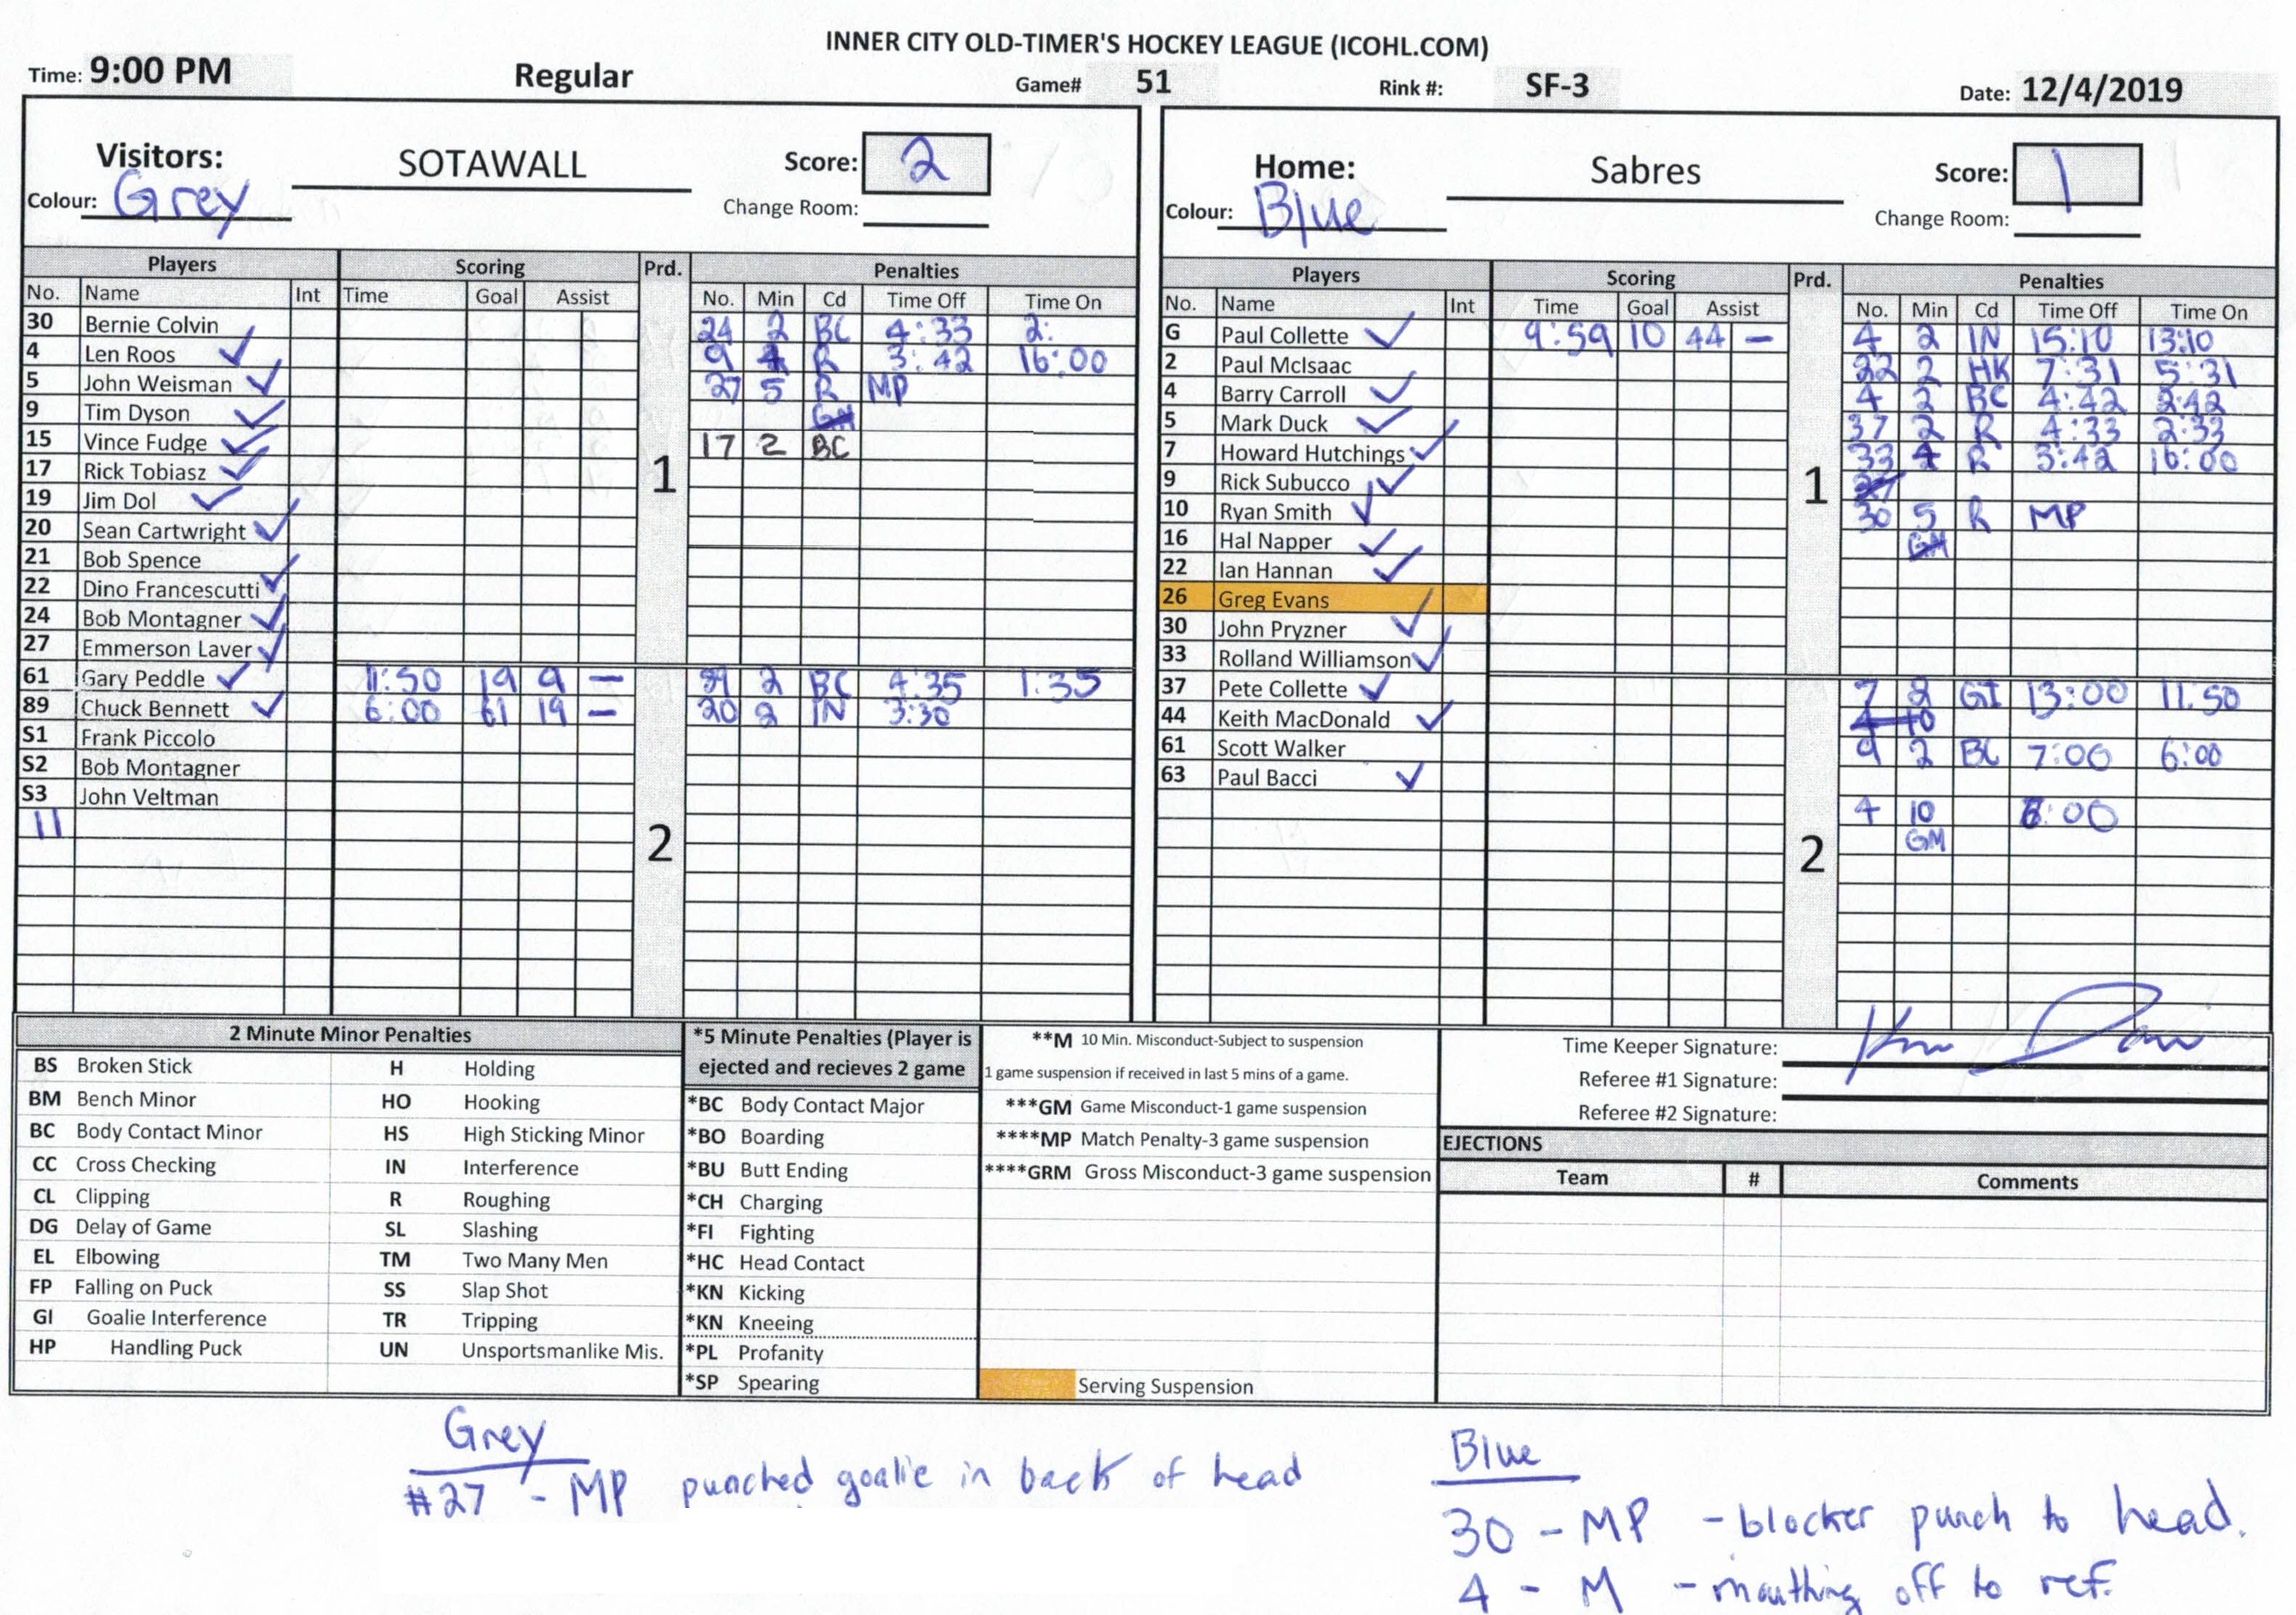 INNER CITY OLD-TIMER'S HOCKEY LEAGUE (ICOHL.COM)
Time: 9:00 PM Regular Game# 51 Rink #: SF-3 Date: 12/4/2019
Visitors: SOTAWALL Score: 2
Colour: Grey Change Room:
Home: Sabres Score: 1
Colour: Blue Change Room:
Players Scoring Prd. Penalties
No. Name Int Time Goal Assist No. Min Cd Time Off Time On
30 Bernie Colvin 24 2 BC 4:33 2:
4 Len Roos ✓ 9 4 R 3:42 16:00
5 John Weisman ✓ 27 5 R MP
9 Tim Dyson ✓ GM
15 Vince Fudge ✓ 17 2 BC
17 Rick Tobiasz ✓
1
19 Jim Dol ✓
20 Sean Cartwright ✓
21 Bob Spence
22 Dino Francescutti ✓
24 Bob Montagner ✓
27 Emmerson Laver ✓
61 Gary Peddle ✓ 11:50 19 9 – 2 BC 4:35 1:35
89 Chuck Bennett ✓ 6:00 61 19 – 20 2 IN 3:30
S1 Frank Piccolo
S2 Bob Montagner
S3 John Veltman
11
2
Players Scoring Prd. Penalties
No. Name Int Time Goal Assist No. Min Cd Time Off Time On
G Paul Collette ✓ 9:59 10 44 – 4 2 IN 15:10 13:10
2 Paul McIsaac 22 2 HK 7:31 5:31
4 Barry Carroll ✓ 4 2 BC 4:42 2:42
5 Mark Duck ✓ 37 2 R 4:33 2:33
7 Howard Hutchings ✓ 33 4 R 3:42 16:00
9 Rick Subucco ✓ 27
1
10 Ryan Smith ✓ 30 5 R MP
16 Hal Napper ✓ GM
22 Ian Hannan ✓
26 Greg Evans
30 John Pryzner ✓
33 Rolland Williamson ✓
37 Pete Collette ✓ 7 2 GI 13:00 11:50
44 Keith MacDonald ✓ 4 10
61 Scott Walker 9 2 BC 7:00 6:00
63 Paul Bacci ✓
4 10 6:00
GM
2
2 Minute Minor Penalties
BS Broken Stick H Holding
BM Bench Minor HO Hooking
BC Body Contact Minor HS High Sticking Minor
CC Cross Checking IN Interference
CL Clipping R Roughing
DG Delay of Game SL Slashing
EL Elbowing TM Two Many Men
FP Falling on Puck SS Slap Shot
GI Goalie Interference TR Tripping
HP Handling Puck UN Unsportsmanlike Mis.
*5 Minute Penalties (Player is
ejected and recieves 2 game
*BC Body Contact Major
*BO Boarding
*BU Butt Ending
*CH Charging
*FI Fighting
*HC Head Contact
*KN Kicking
*KN Kneeing
*PL Profanity
*SP Spearing
**M 10 Min. Misconduct-Subject to suspension
1 game suspension if received in last 5 mins of a game.
***GM Game Misconduct-1 game suspension
****MP Match Penalty-3 game suspension
****GRM Gross Misconduct-3 game suspension
Serving Suspension
Time Keeper Signature:
Referee #1 Signature:
Referee #2 Signature:
EJECTIONS
Team # Comments
Grey
#27 - MP punched goalie in back of head
Blue
30 - MP - blocker punch to head.
4 - M - mouthing off to ref.